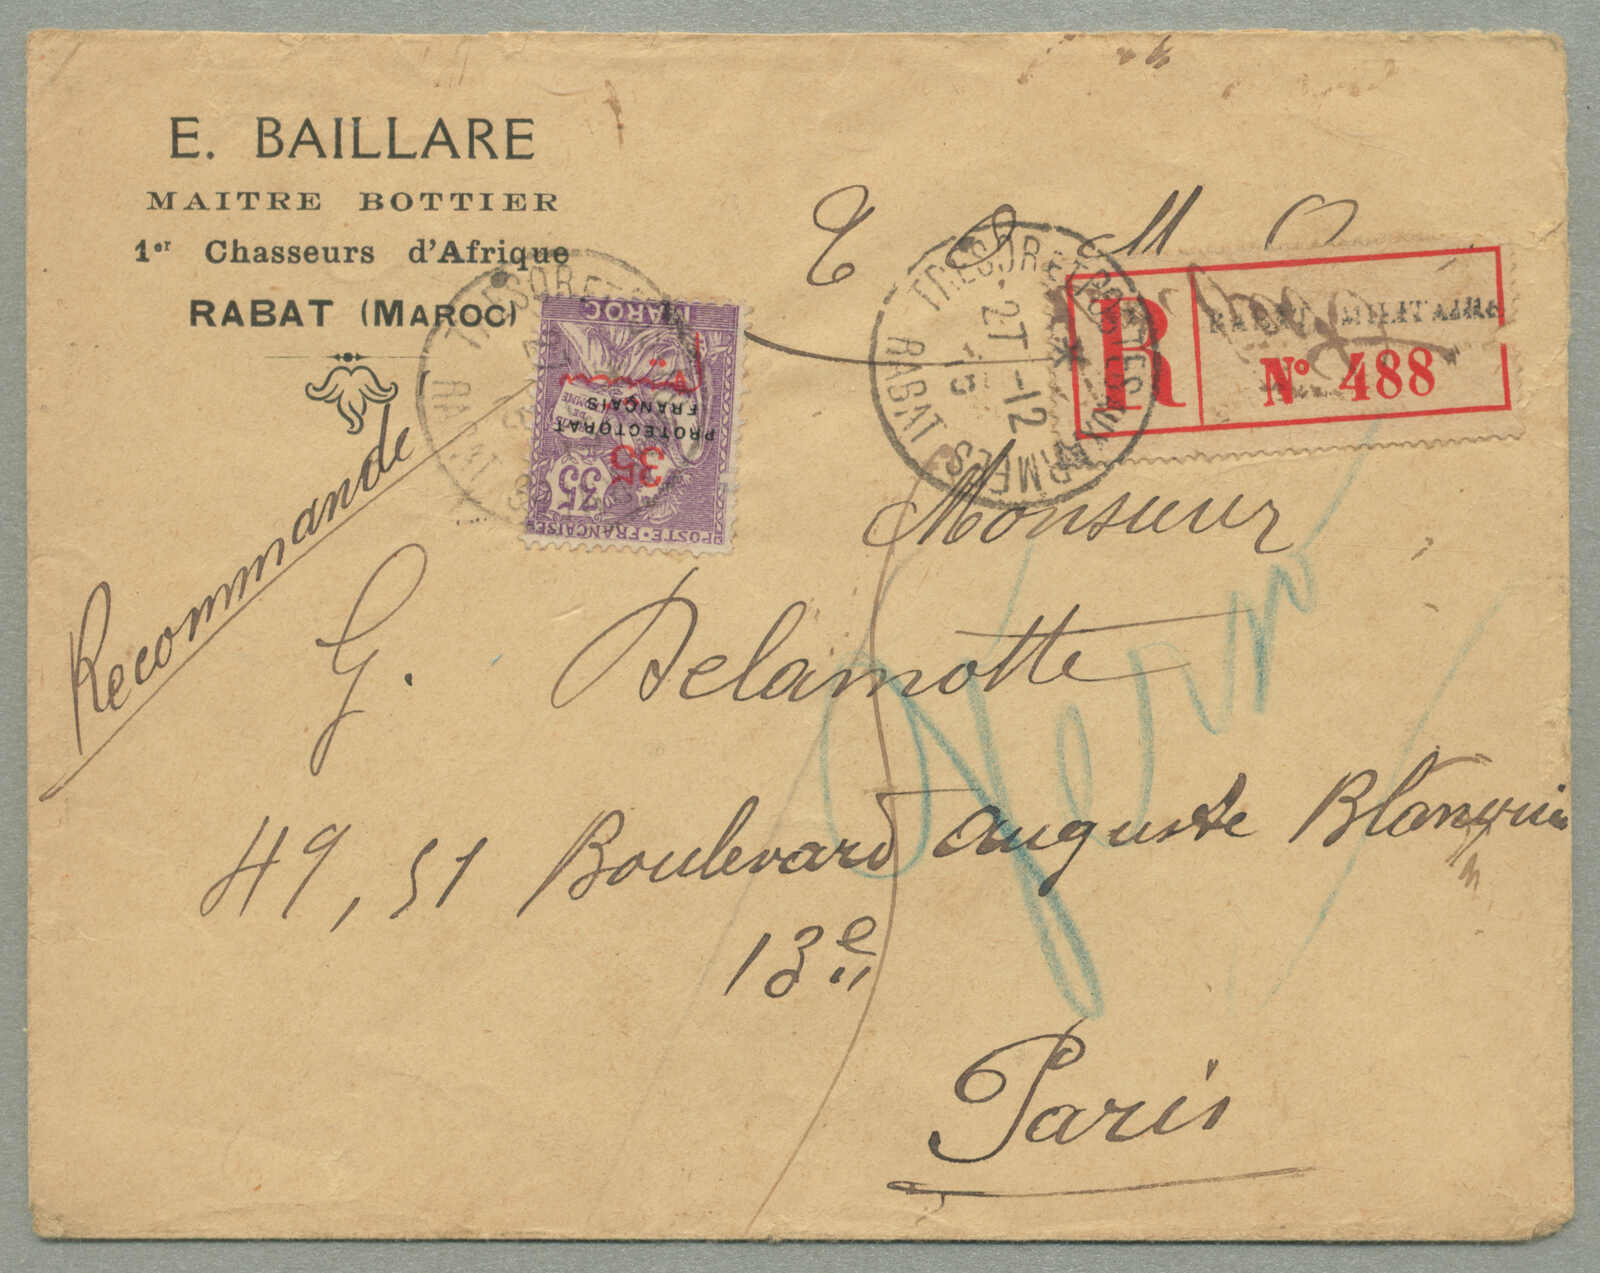 E. BAILLARE
MAITRE BOTTIER
1er Chasseurs d'Afrique
RABAT (MAROC)
Recommandé
MAROC
PROTECTORAT
FRANÇAIS
35
35
POSTE·FRANÇAISE
TRESOR ET POSTES AUX ARMEES
27-12
15
RABAT
R
RABAT MILITAIRE
N° 488
Monsieur
G. Delamotte
49, 51 Boulevard Auguste Blanqui
13e
Paris